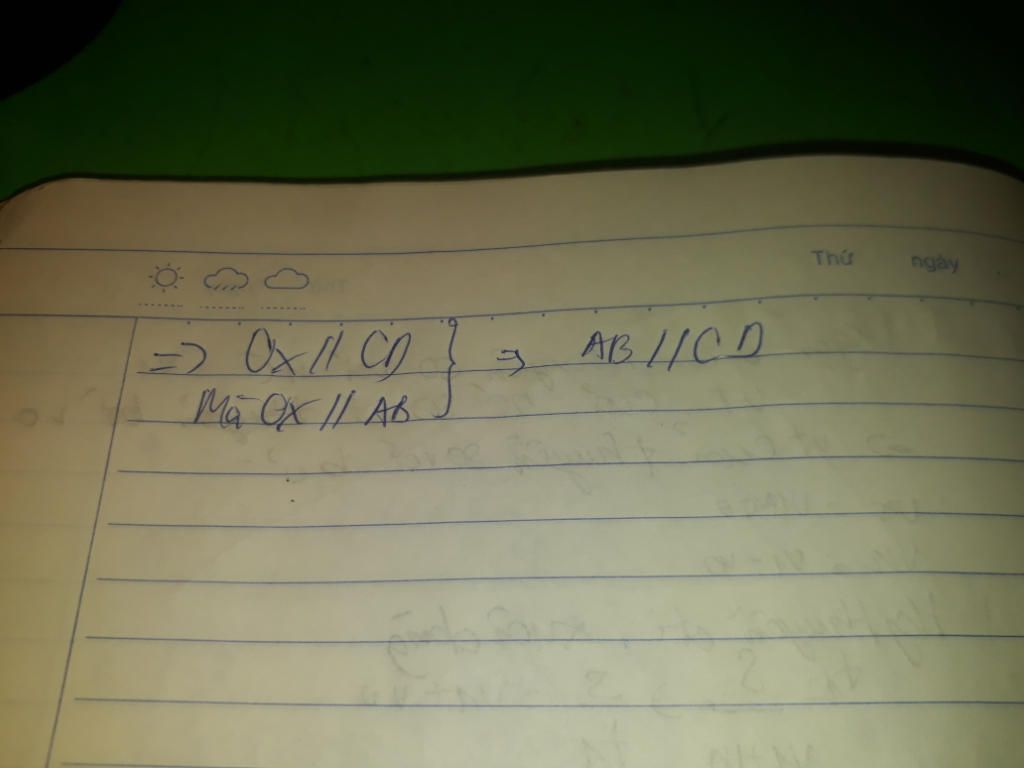 Thứ ngày
=> Ox // CD } => AB // CD
Mà Ox // AB